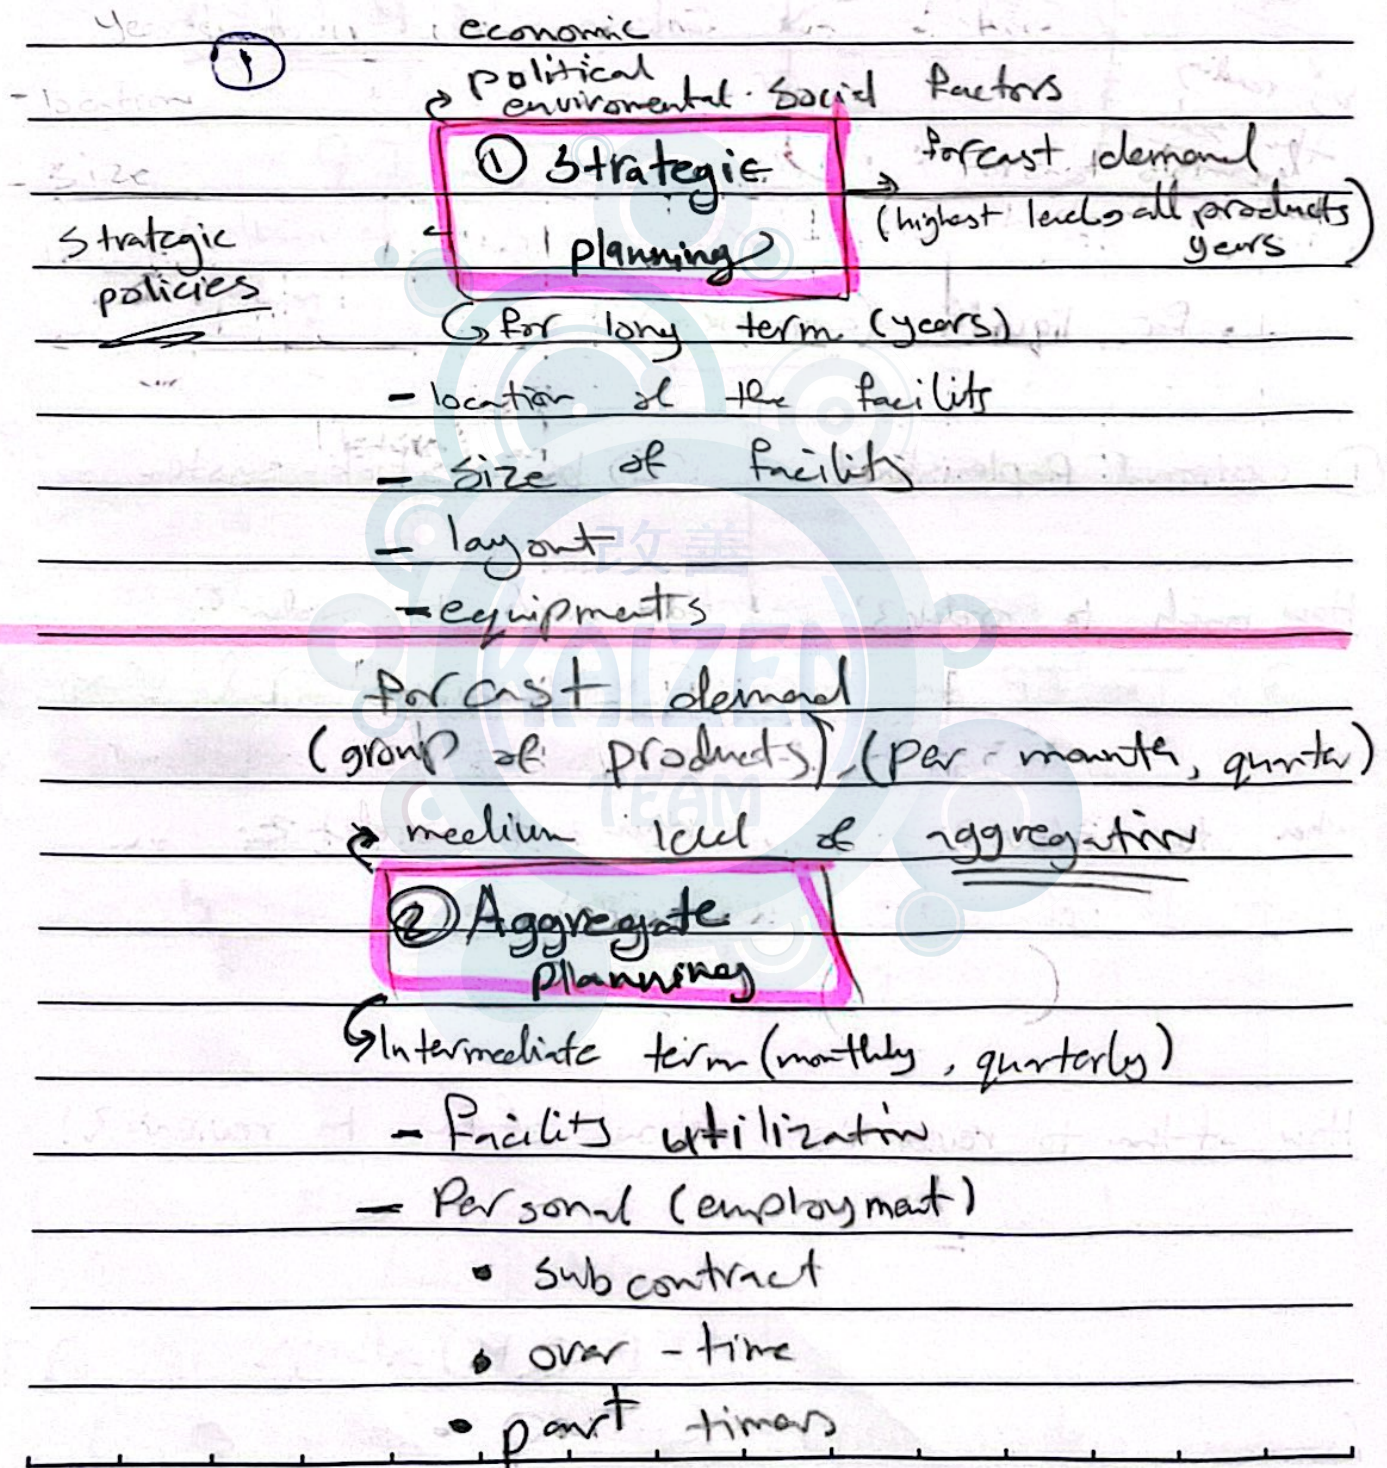 economic
1
political
enviromental. Social factors
① Strategic
planning
forcast demand
(highest level all products
years)
Strategic
policies
for long term (years)
- location of the facility
- Size of facility
- layout
改善
- equipments
KAIZEN
forcast demand
(group of products), (per mounth, quarter)
TEAM
medium level of aggregation
② Aggregate
planning
Intermediate term (monthly, quarterly)
- Facility utilization
- Personal (employment)
• subcontract
• over-time
• part timers